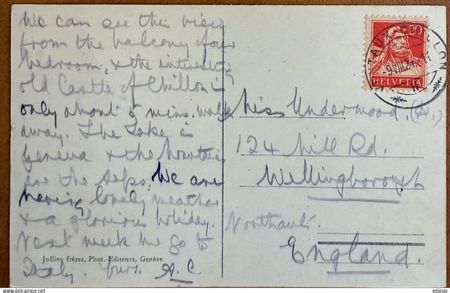 We can see this view
from the balcony of our
bedroom, & the interesting
old Castle of Chillon is
only about 5 mins. walk
away. The Lake is
Geneva & the mountains
are the Alps. We are
having lovely weather
& a glorious holiday.
Next week we go to
Italy. Yours. A.C
Jullien frères, Phot.-Editeurs, Genève
20
HELVETIA
Miss Underwood.
124 Mill Rd.
Wellingborough
Northants
England.